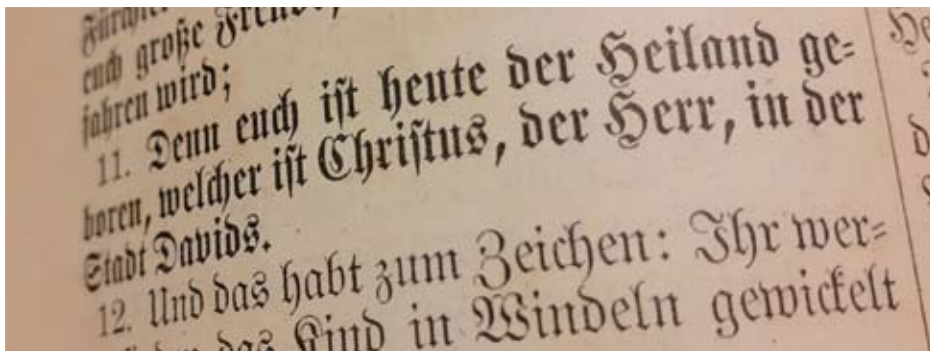 Fürchtet
euch große Freude,
fahren wird;
11. Denn euch ist heute der Heiland ge=
boren, welcher ist Christus, der Herr, in der
Stadt Davids.
12. Und das habt zum Zeichen: Ihr wer=
das Kind in Windeln gewickelt